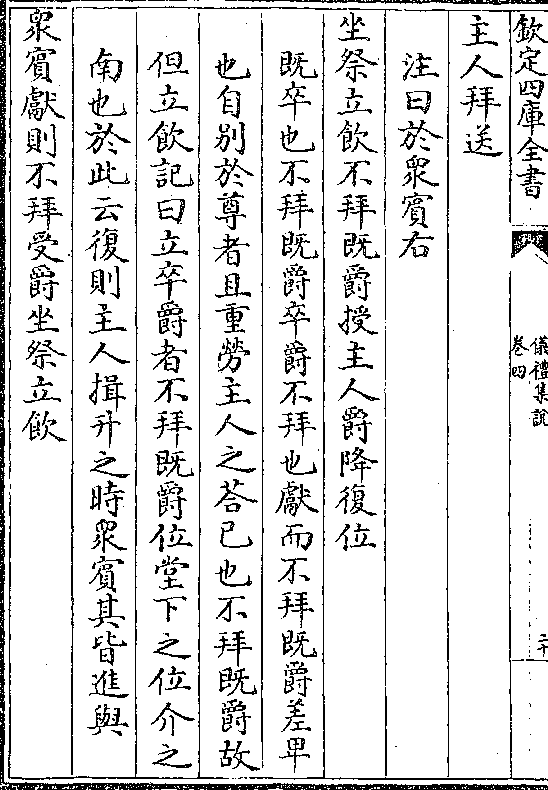 欽定四庫全書
儀禮集説
卷四
二十
主人拜送
注曰於衆賓右
坐祭立飲不拜既爵授主人爵降復位
既卒也不拜既爵卒爵不拜也獻而不拜既爵差卑
也自别於尊者且重勞主人之荅已也不拜既爵故
但立飲記曰立卒爵者不拜既爵位堂下之位介之
南也於此云復則主人揖升之時衆賓其皆進與
衆賓獻則不拜受爵坐祭立飲